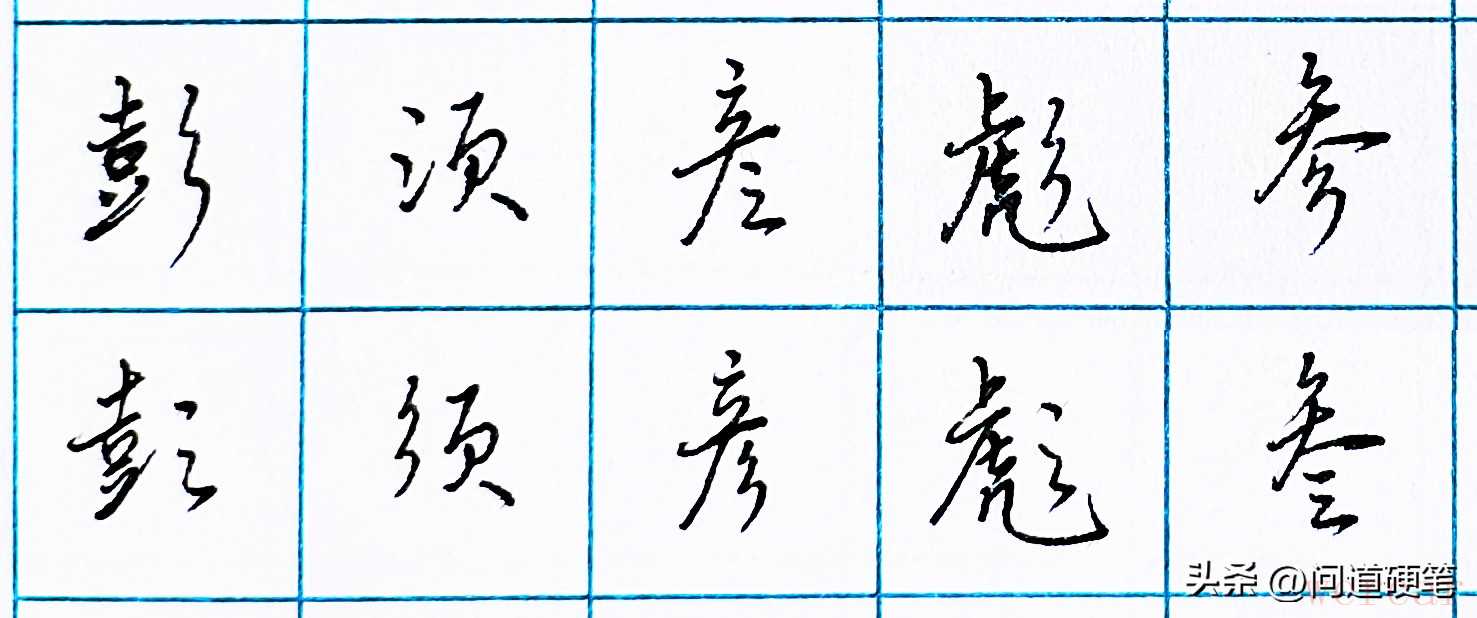 彭须彦彪参
彭须彦彪参
头条 @问道硬笔